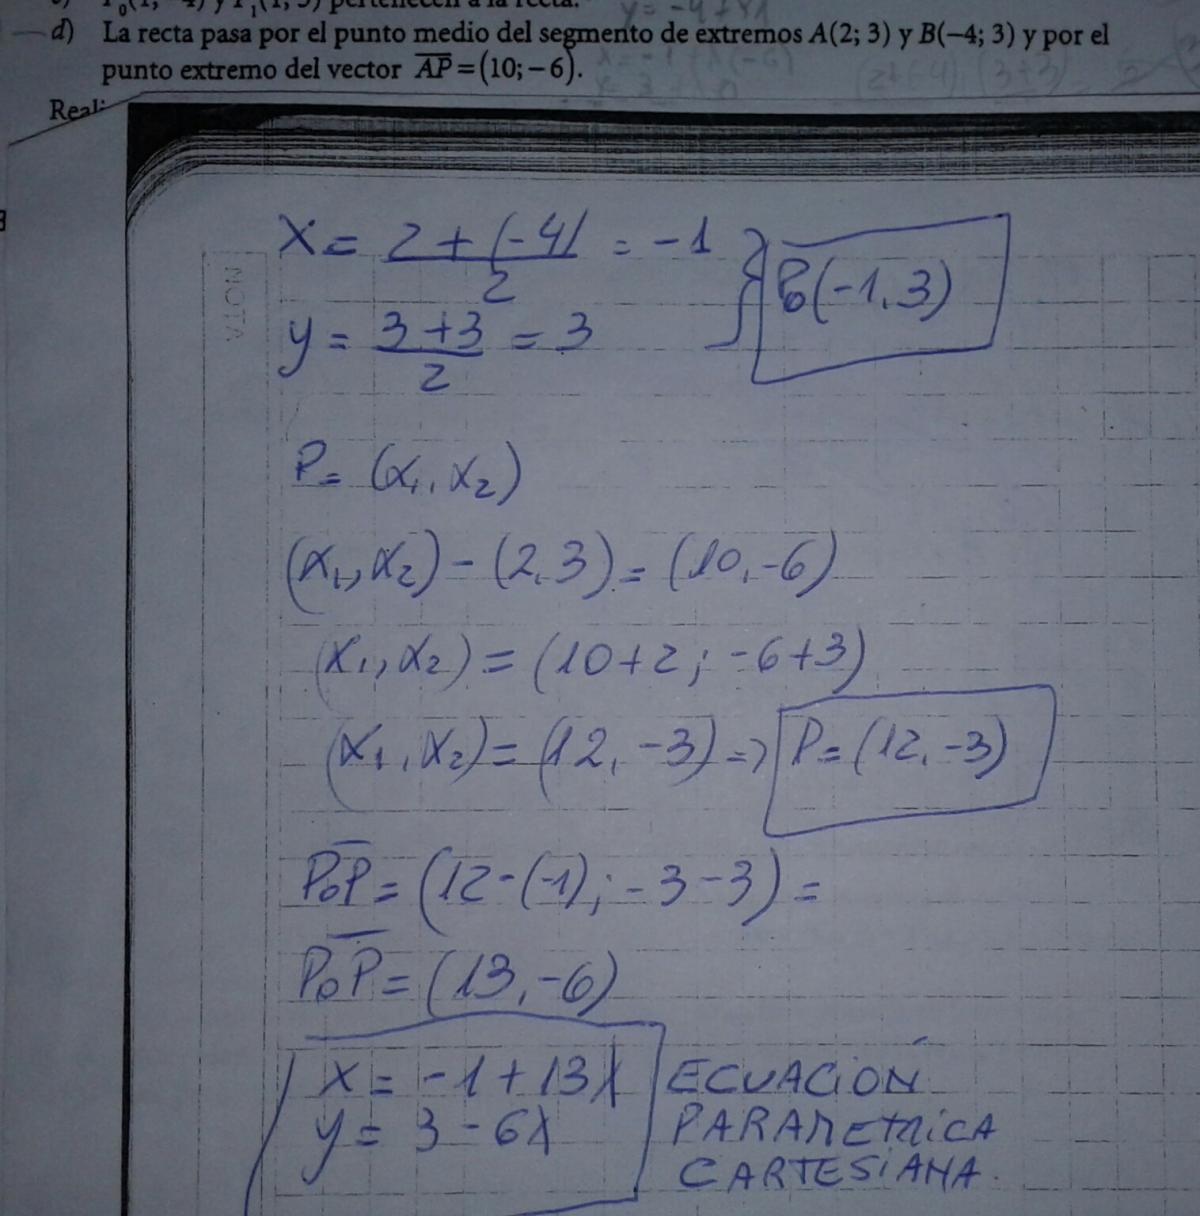 P₀(1; −4) y P₁(1; 3) pertenecen a la recta.
d) La recta pasa por el punto medio del segmento de extremos A(2; 3) y B(−4; 3) y por el
punto extremo del vector AP = (10; −6).
Reali
NOTA
X = 2 + (-4) / 2 = -1
y = 3 + 3 / 2 = 3
P₀(-1, 3)
P = (x₁, x₂)
(x₁, x₂) - (2, 3) = (10, -6)
(x₁, x₂) = (10+2; -6+3)
(x₁, x₂) = (12, -3) => P = (12, -3)
P₀P = (12-(-1); -3-3) =
P₀P = (13, -6)
x = -1 + 13λ
y = 3 - 6λ
ECUACIÓN
PARAMETRICA
CARTESIANA.